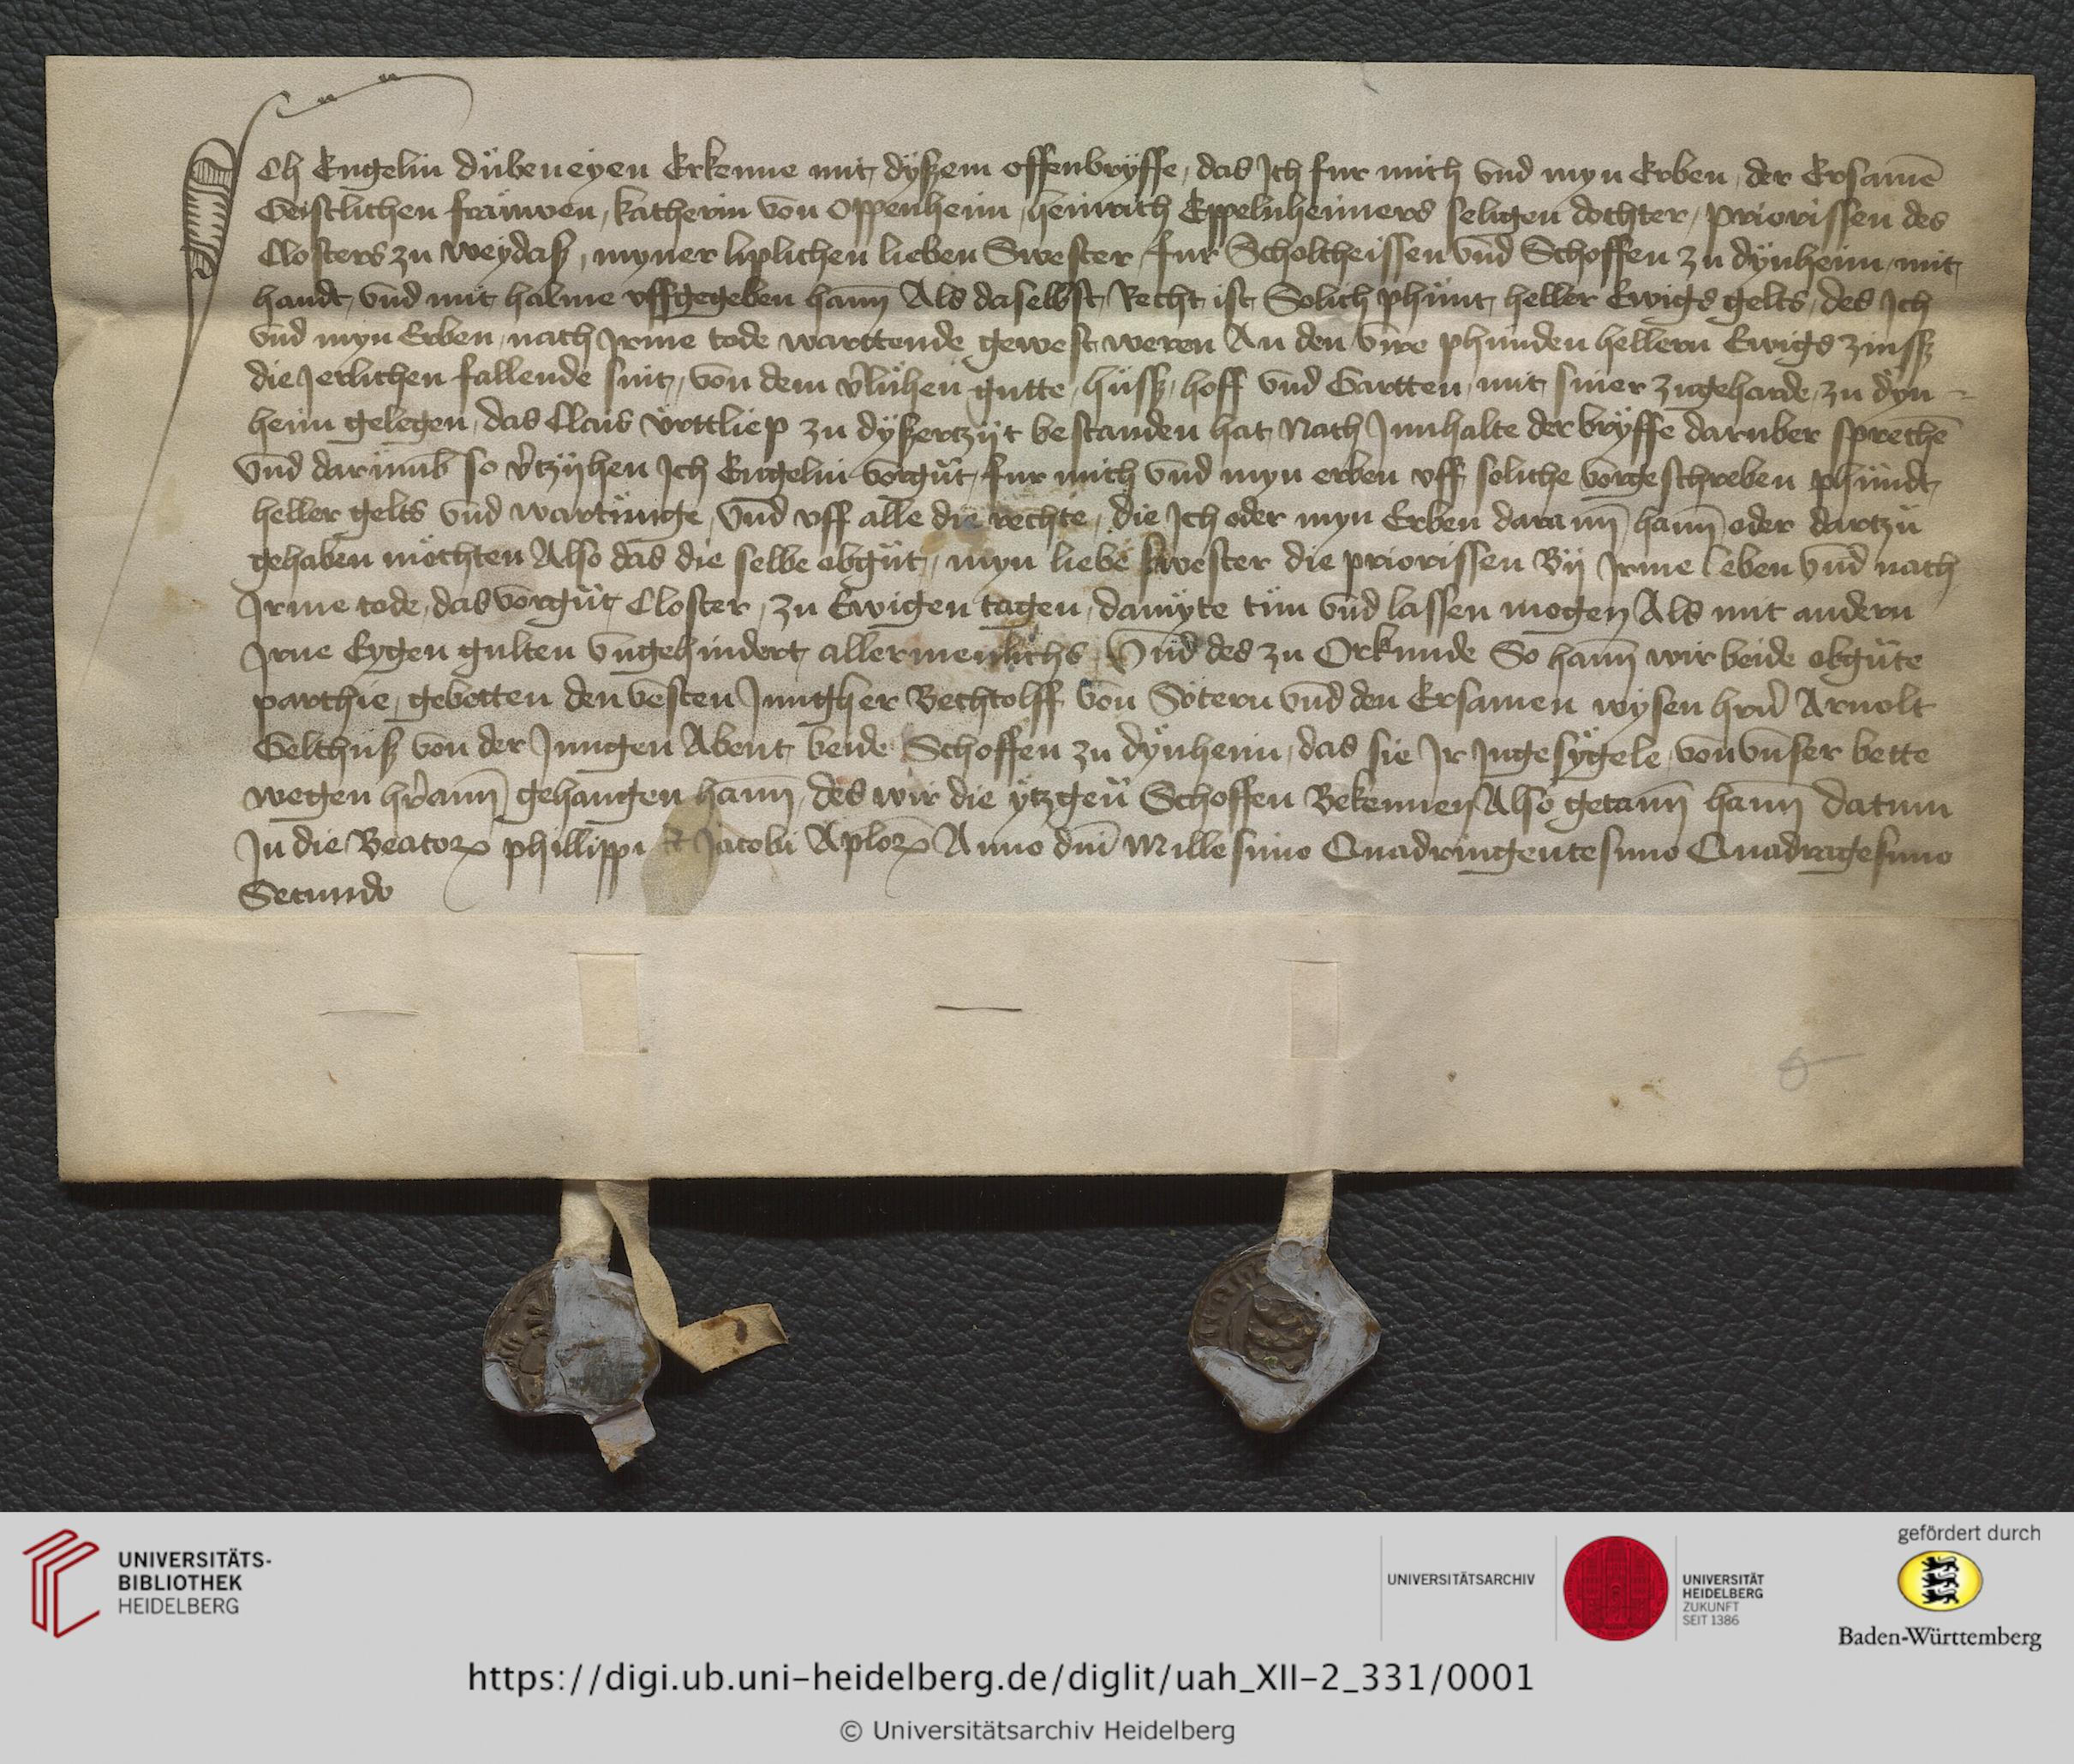 Ich Engelin dübeneyen Erkenne mit dyßem offenbryffe, das Ich fur mich vnd myn Erben, der Ersamē
Geistlichen fräuwen, katherin von Oppenheim, heinrich Eppelnheimers seligen dochter, priorissen des
Closters zu weydaß, myner liplichen lieben Swester, fur Scholtheissen vnd Schoffen zu dÿnheim, mit
handt, vnd mit halme vffgegeben hann̄ Als daselbst Recht ist Solich phünt, heller Ewigs gelts, des Ich
vnd myn Erben, nach Irme tode warttende gewest weren An den vire phunden hellern Ewigs zinsß
die Jerlichen fallende sint, von dem gutte, hüsß, hoff vnd Gartten, mit siner zugeharde, zu dÿn-
heim gelegen, das Clais vrttliep zu dyßertzÿt bestanden hat, Nach Innhalte der bryffe daruber sprechē
vnd darümb so v̉tzyhen Ich Engelin vorgūt, fur mich vnd myn erben vff soliche vorgeschreben phündt,
heller gelts vnd wartünge, vnd vff alle die rechte, die Ich oder myn Erben darann̄ hann̄ oder dartzü
gehaben möchten Also das die selbe obgūt, myn liebe swester die priorissen By Irme leben vnd nach
Irme tode, das vorgūt Closter, zu Ewigen tagen, damÿte tün vnd lassen mogen Als mit andern
Irne Eygen gulten vngehindert allermenlichs Vnd des zu Orkunde So hann̄ wir beide obgūte
parthie, gebetten den vesten Jungher Bechtolff von Sötern vnd den Ersamen wysen hrn̄ Arnolt
Gelthuß von der Jungen Abent, beide Schoffen zu dÿnheim, das sie Ir Ingesÿgele, von vnser bette
wegen hv̉ann̄ gehangen hann̄, des wir die ÿtzgen̄ Schoffen Bekennen Also getann̄ hann̄ datum
In die Beatorꝝ phillippi et Jacobi Aplorꝝ Anno dn̄i Millesimo Quadringentesimo Quadragesimo
Secundo
UNIVERSITÄTS-
BIBLIOTHEK
HEIDELBERG
UNIVERSITÄTSARCHIV
UNIVERSITÄT
HEIDELBERG
ZUKUNFT
SEIT 1386
gefördert durch
Baden-Württemberg
https://digi.ub.uni-heidelberg.de/diglit/uah_XII-2_331/0001
© Universitätsarchiv Heidelberg